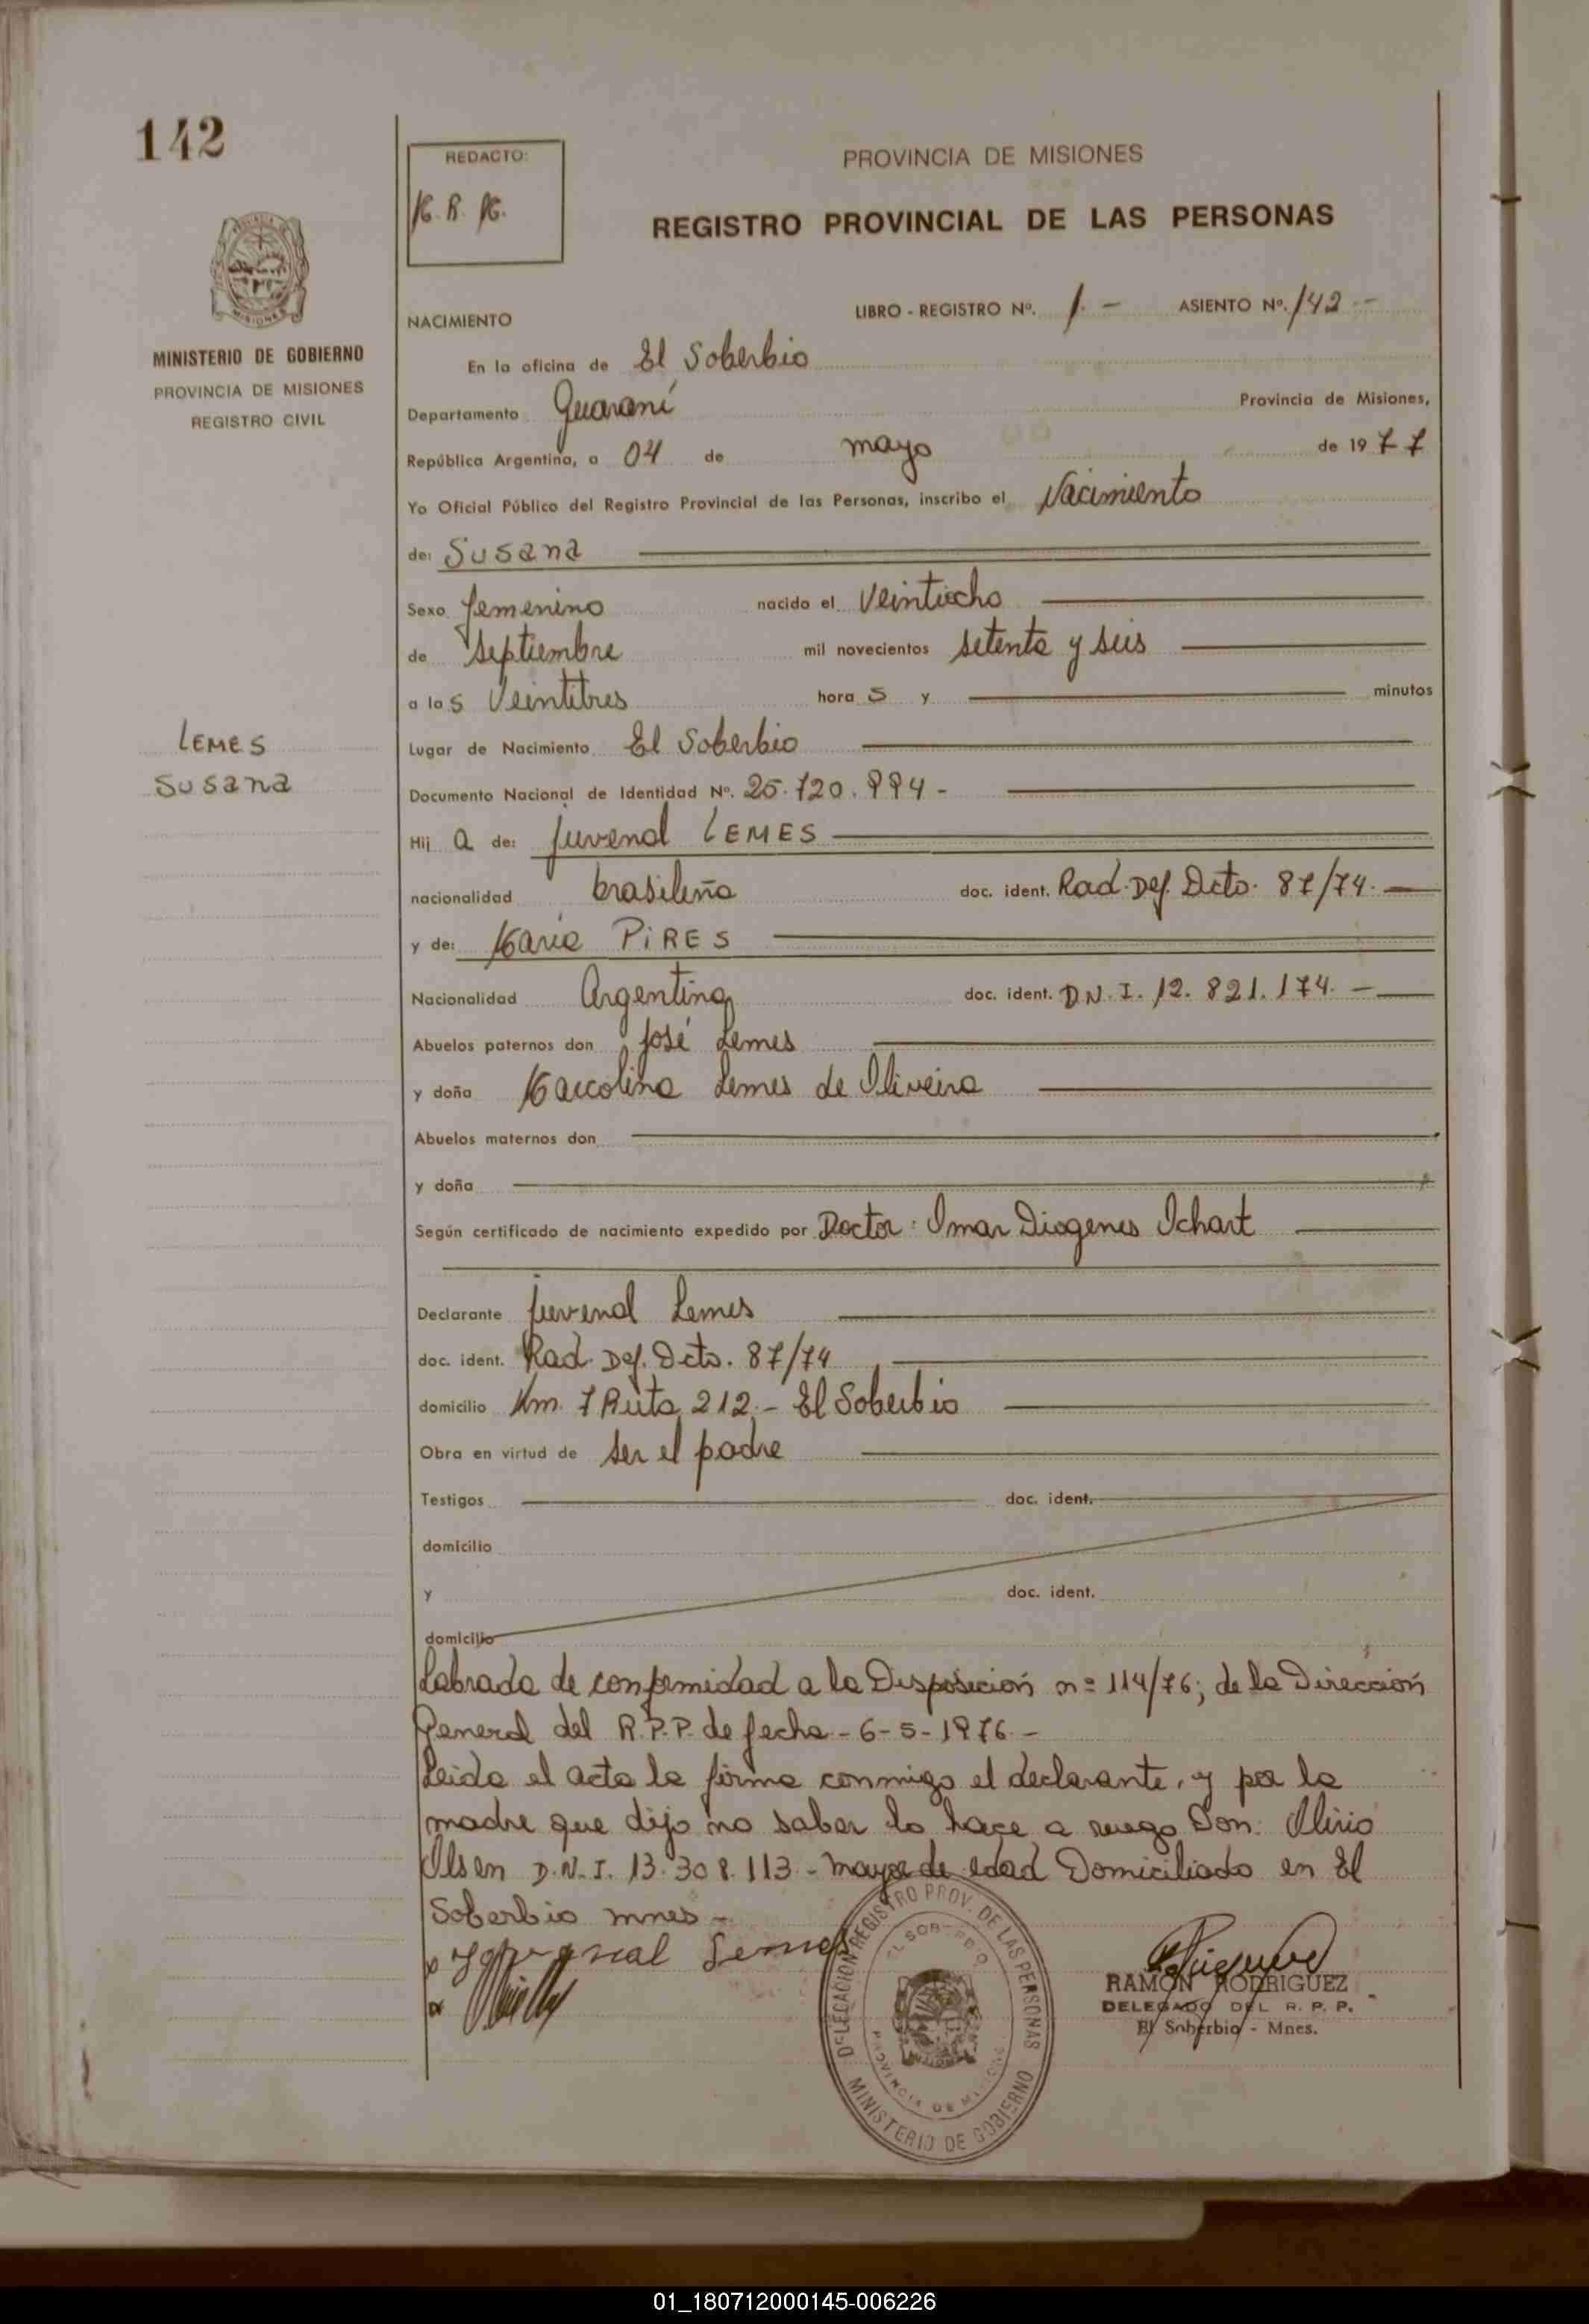 142
REDACTO:
PROVINCIA DE MISIONES
REGISTRO PROVINCIAL DE LAS PERSONAS
MINISTERIO DE GOBIERNO
PROVINCIA DE MISIONES
REGISTRO CIVIL
NACIMIENTO
LIBRO - REGISTRO Nº. 1. - ASIENTO Nº. 142 -
En la oficina de El Soberbio
Departamento Guaraní Provincia de Misiones,
República Argentina, a 04 de mayo de 1977
Yo Oficial Público del Registro Provincial de las Personas, inscribo el Nacimiento
de: Susana
Sexo femenino nacido el Veintiocho
de septiembre mil novecientos setenta y seis
a las Veintitres horas y minutos
LEMES
Susana
Lugar de Nacimiento El Soberbio
Documento Nacional de Identidad Nº. 25.720.994 -
Hija de: Juvenal LEMES
nacionalidad brasileña doc. ident. Rad. Def. Dcto. 87/74. -
y de: Maria PiRES
Nacionalidad Argentina doc. ident. D.N.I. 12.821.174. -
Abuelos paternos don José Lemes
y doña Marcolina Lemes de Oliveira
Abuelos maternos don
y doña
Según certificado de nacimiento expedido por Doctor: Omar Diogenes Ochart
Declarante Juvenal Lemes
doc. ident. Rad. Def. Dcto. 87/74
domicilio Km. 7 Ruta 212.- El Soberbio
Obra en virtud de ser el padre
Testigos doc. ident.
domicilio
y doc. ident.
domicilio
Labrada de conformidad a la Disposición nº 114/76; de la Dirección
General del R.P.P. de fecha - 6-5-1976.-
Leida el acta la firma conmigo el declarante, y por la
madre que dijo no saber lo hace a ruego Don: Olirio
Olsen D.N.I. 13.308.113 - mayor de edad Domiciliado en El
Soberbio mnes -
Lemes
DELEGACION REGISTRO PROV. DE LAS PERSONAS
EL SOBERBIO
PROVINCIA DE MISIONES
MINISTERIO DE GOBIERNO
RAMON RODRIGUEZ
DELEGADO DEL R. P. P.
El Soberbio - Mnes.
01_180712000145-006226